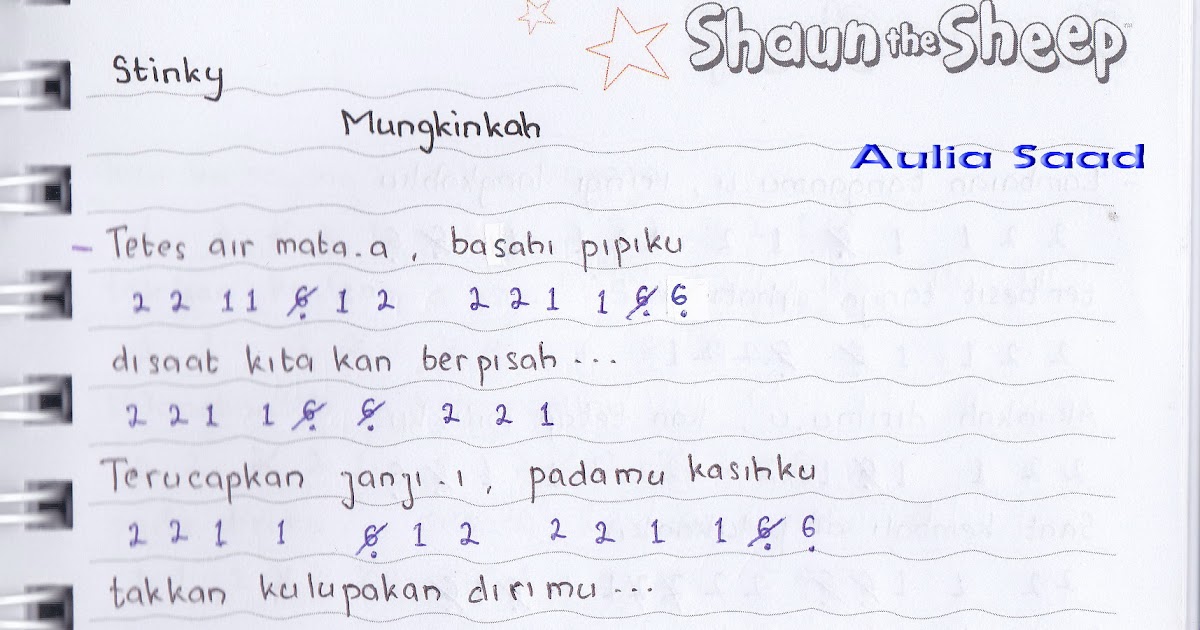 Shaun the Sheep™
Stinky
Mungkinkah
Aulia Saad
- Tetes air mata.a, basahi pipiku
2 2 1 1 6̸̣ 1 2 2 2 1 1 6̸̣ 6̣
disaat kita kan berpisah ...
2 2 1 1 6̸̣ 6̸̣ 2 2 1
Terucapkan janji.i, padamu kasihku
2 2 1 1 6̸̣ 1 2 2 2 1 1 6̸̣ 6̣
takkan kulupakan dirimu...